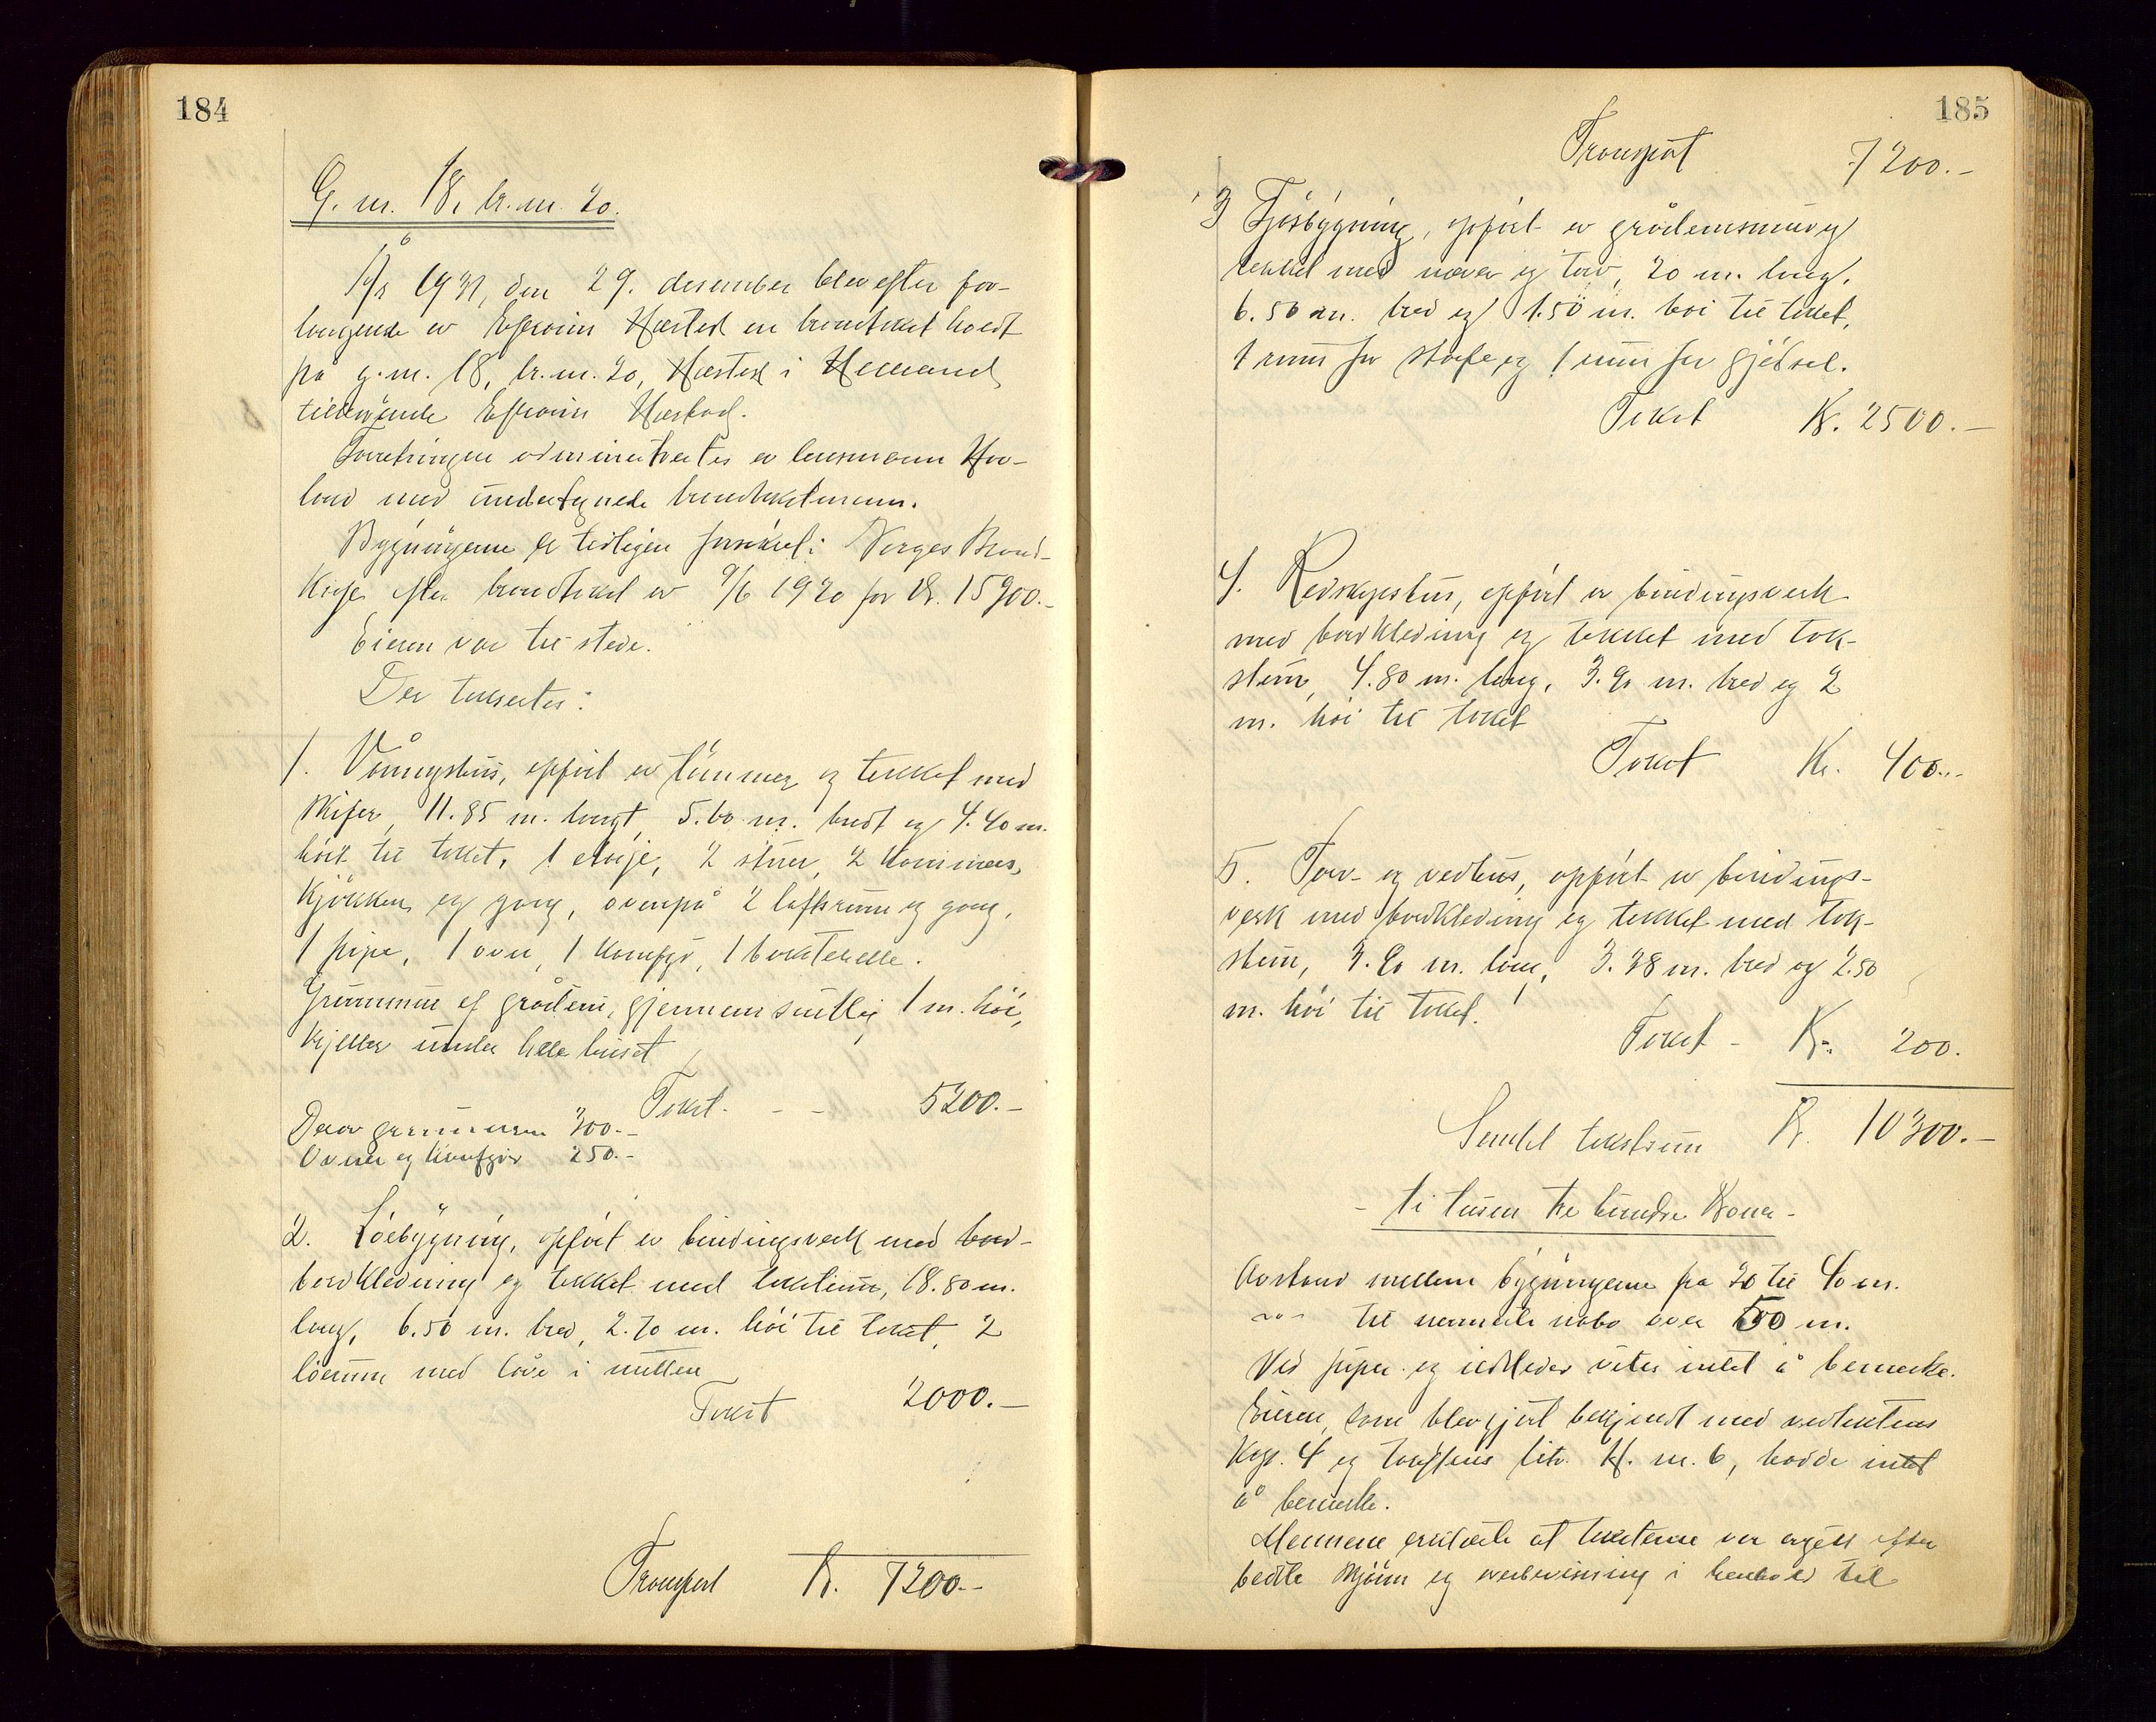 184
G. nr. 18, br. nr. 20.
År 1931, den 29. desember blev efter for-
langende av Efraim Hæstad en branntakst holdt
på g. nr. 18, br. nr. 20, Hæstad i
tilhørende Efraim Hæstad.
Forretningen administrertes av lensmann Hov-
land med undertegnede branntakstmenn.
Bygningerne er tidligere forsikret i Norges Brand-
kasse efter brandtakst av 9/6 1920 for kr. 15900.-
Eieren var til stede.
Der taksertes:
1. Våningshus, opført av tømmer og tekket med
skifer, 11.85 m. langt, 5.60 m. bredt og 4.40 m.
høit til taket, 1 etasje, 2 stuer, 2 kammers,
kjøkken og gang, ovenpå 2 loftsrum og gang,
1 pipe, 1 ovn, 1 komfyr, 1 baktehelle.
Grunnmur af gråsten, gjennemsnitlig 1 m. høi,
kjeller under hele huset
Takst. - - 5200.-
Derav grunnmuren 300.-
Ovner og komfyr 250.-
2. Löebygning, opført av bindingsverk med bord-
bordklædning og tekket med takstein, 18.80 m.
lang, 6.50 m. bred, 2.70 m. høi til taket, 2
löerum med låve i midten
Takst 2000.-
Transport Kr. 7200.-
185
Transport 7200.-
3 Fjøsbygning, opført av gråstensmur og
tekket med never og torv, 20 m. lang,
6.50 m. bred og 1.50 m. høi til taket,
1 rum for storfe og 1 rum for gjødsel.
Takst Kr. 2500.-
4. Redskapshus, opført av bindingsverk
med bordklædning og tekket med tak-
stein, 4.80 m. lang, 3.90 m. bred og 2
m. høi til taket
Takst Kr. 400.-
5. Torv- og vedhus, opført av bindings-
verk med bordklædning og tekket med tak-
stein, 3.80 m. lang, 3.38 m. bred og 2.50
m. høi til taket.
Takst - Kr. 200.
Samlet takstsum Kr. 10300.-
- ti tusen tre hundre kroner -
Avstand mellem bygningerne fra 20 til 40 m.
-"- til nermeste nabo over 50 m.
Ved piper og ildsteder vites intet å bemerke.
Eieren, som blev gjort bekjendt med vedtektens
kap. 4 og tariffens litr. H. nr. 6, hadde intet
å bemerke.
Mennene erklærte at taksterne var avgitt efter
bedste skjønn og overbevisning i henhold til